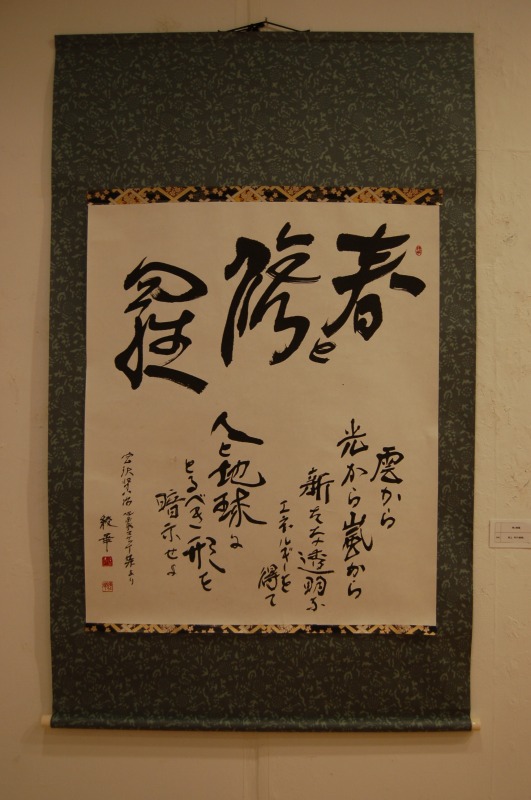 春と
修
羅
雲から
光から嵐から
新たな透明な
エネルギーを得て
人と地球に
とるべき形を
暗示せよ
宮沢賢治
より